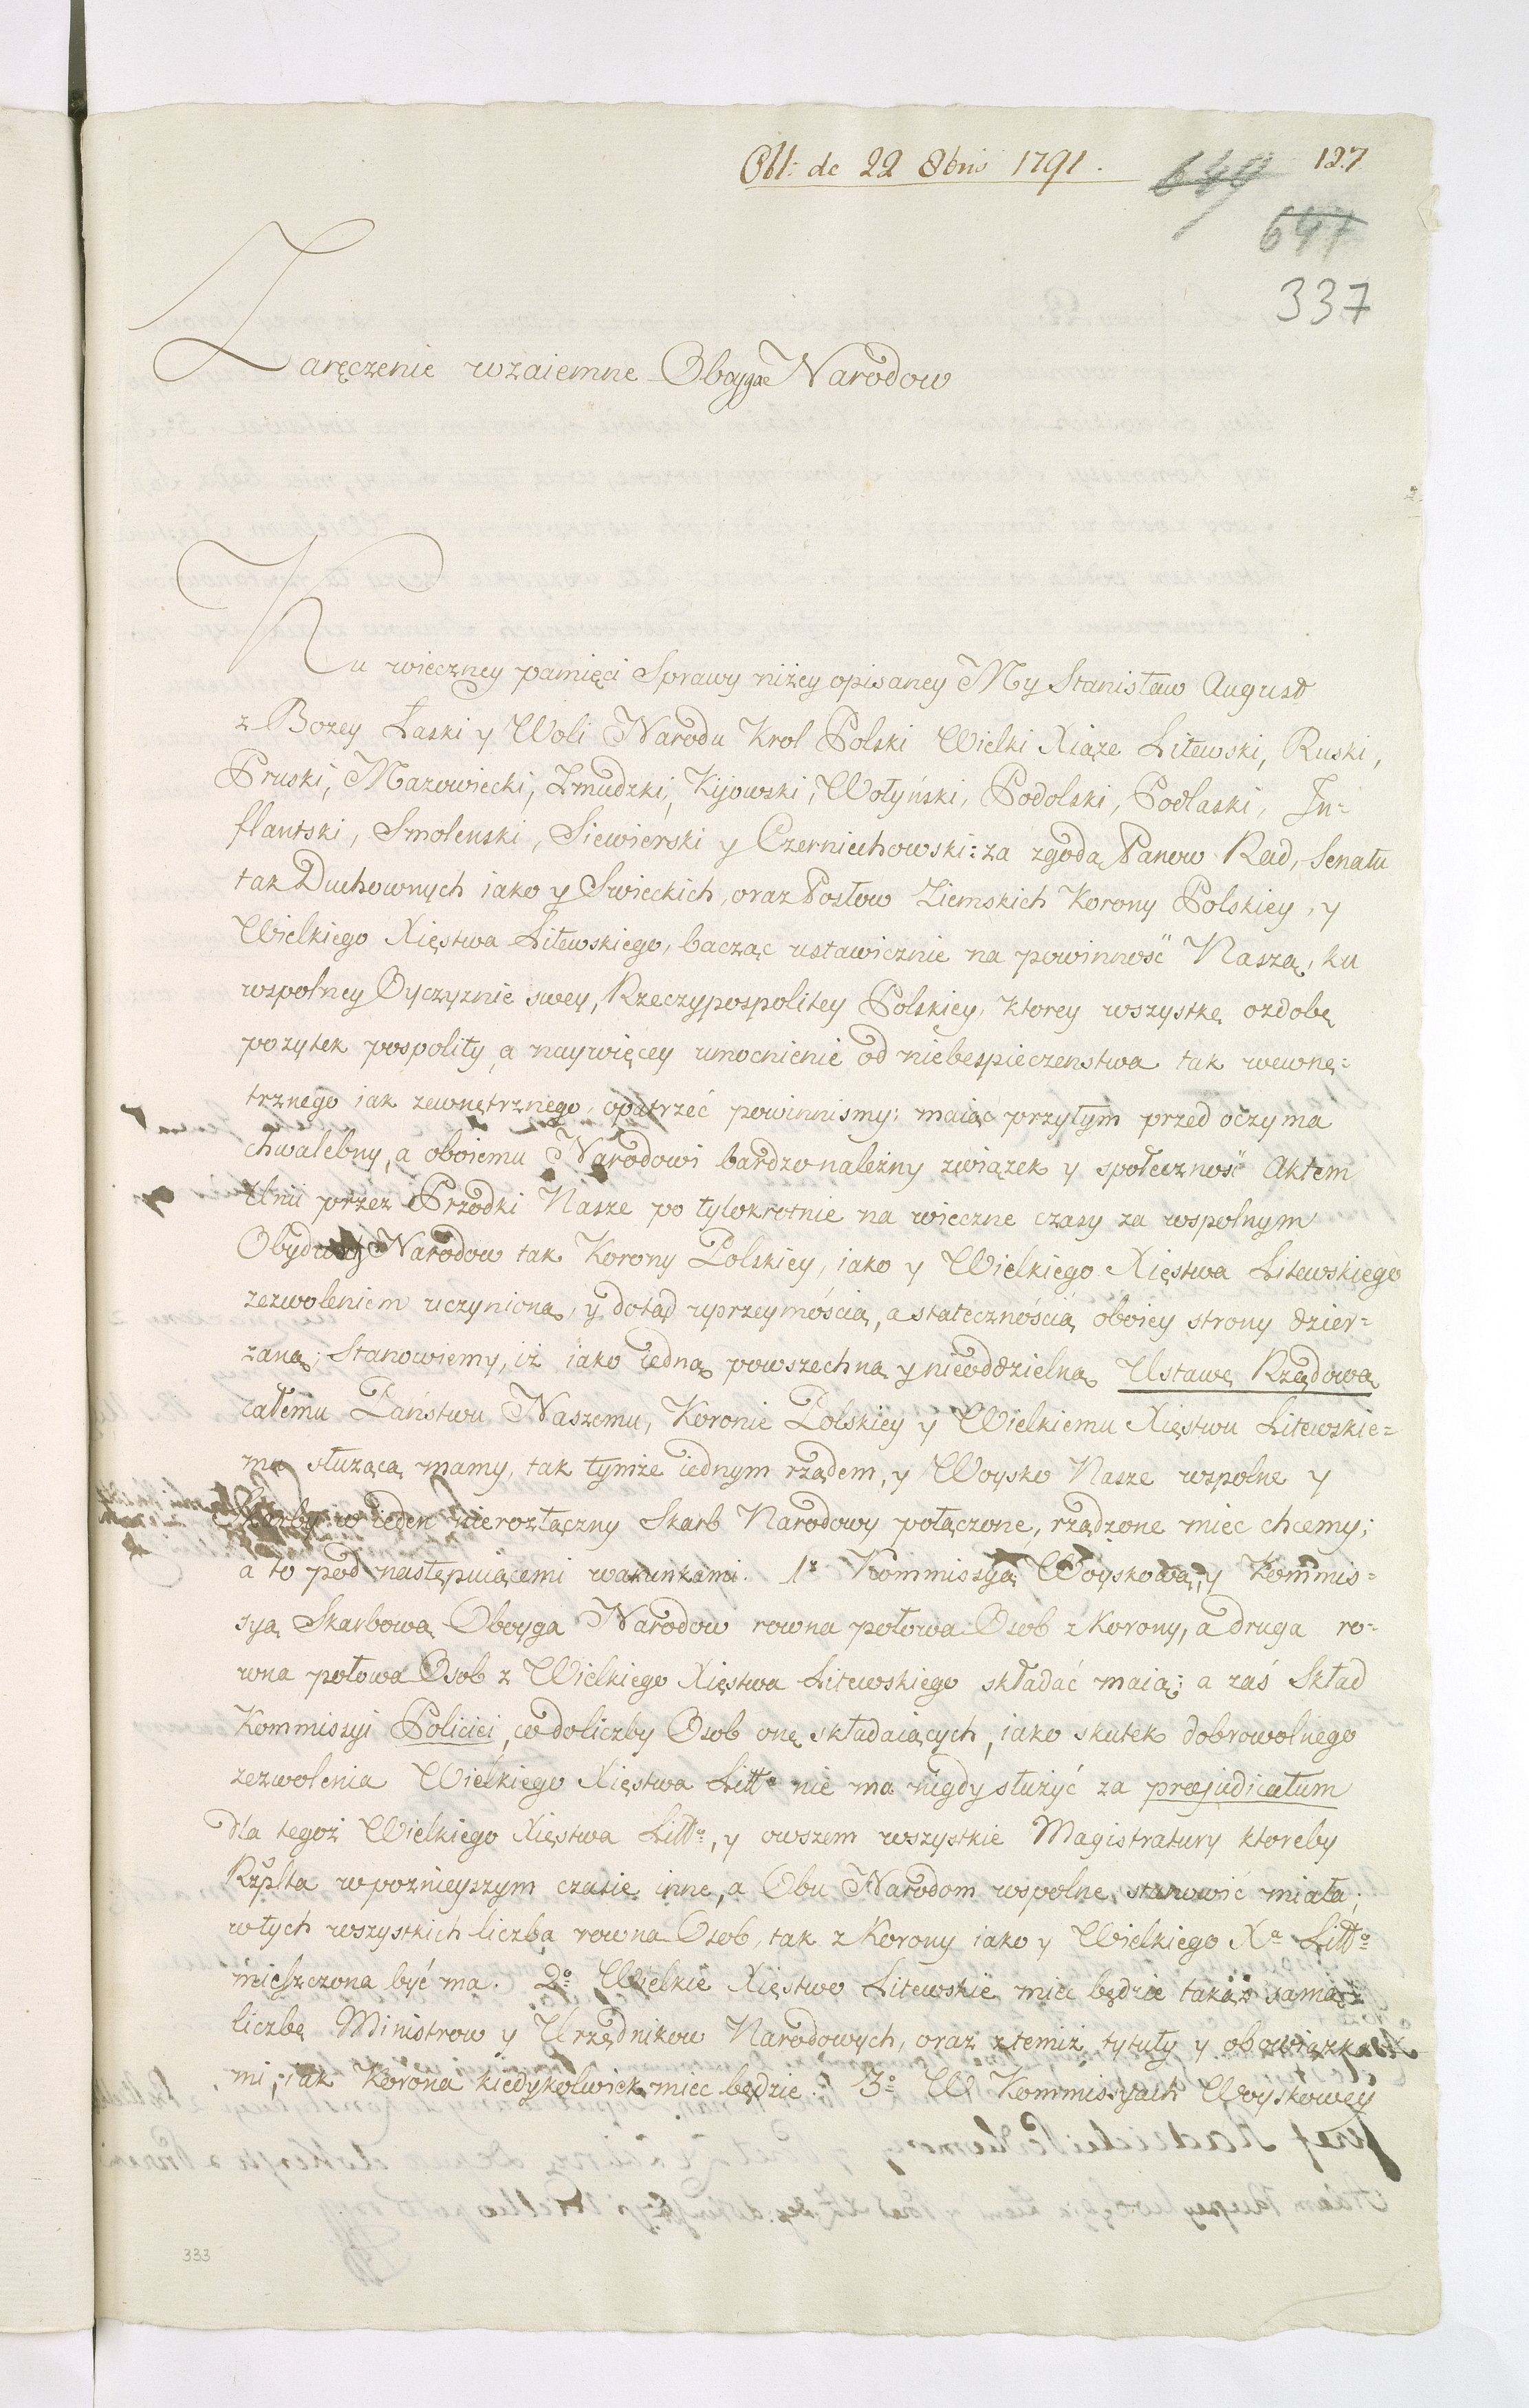 Obl: de 22 8bris 1791.
127
649
647
337
Zaręczenie wzaiemne Oboyga Narodow
Ku wieczney pamięci Sprawy niżey opisaney My Stanisław August
z Bożey Łaski y Woli Narodu Krol Polski Wielki Xiąże Litewski, Ruski,
Pruski, Mazowiecki, Żmudzki, Kijowski, Wołyński, Podolski, Podlaski, In-
flantski, Smolenski, Siewierski y Czerniechowski: za zgodą Panow Rad, Senatu
tak Duchownych iako y Swieckich, oraz Posłow Ziemskich Korony Polskiey, y
Wielkiego Xięstwa Litewskiego, bacząc ustawicznie na powinność Naszą, ku
wspolney Oyczyznie swey, Rzeczypospolitey Polskiey, ktorey wszystkę ozdobę
pozytek pospolity, a naywięcey umocnienie od niebespieczenstwa tak wewnę-
trznego iak zewnętrznego, opatrzeć powinnismy; maiąc przytym przed oczyma
chwalebny, a oboiemu Narodowi bardzo należny związek y społeczność Aktem
Unii przez Przodki Nasze po tylokrotnie na wieczne czasy za wspolnym
Obydwoch Narodow tak Korony Polskiey, iako y Wielkiego Xięstwa Litewskiego
zezwoleniem uczynioną, y dotąd uprzeymością, a statecznością oboiey strony dzier-
żaną; Stanowiemy, iż iako iedną powszechną y nieoddzielną Ustawę Rządową
całemu Państwu Naszemu, Koronie Polskiey y Wielkiemu Xięstwu Litewskie-
mu służącą mamy, tak tymże iednym rządem, y Woysko Nasze wspolne y
Skarby w ieden nierozłączny Skarb Narodowy połączone, rządzone miec chcemy;
a to pod następuiącemi warunkami. 1º Kommissyą Woyskową, y Kommis-
syą Skarbową Oboyga Narodow rowna połowa Osob z Korony, a druga ro-
wna połowa Osob z Wielkiego Xięstwa Litewskiego składać maią; a zaś Skład
Kommissyi Policiei, co do liczby Osob onę składaiących, iako skutek dobrowolnego
zezwolenia Wielkiego Xięstwa Littº nie ma nigdy służyć za præjudicatum
dla tegoż Wielkiego Xięstwa Littº, y owszem wszystkie Magistratury ktoreby
Rzplta w poznieyszym czasie inne, a Obu Narodom wspolne, stanowić miała;
w tych wszystkich liczba rowna Osob, tak z Korony iako y Wielkiego Xa Littº
mieszczona być ma. 2º Wielkie Xięstwo Litewskie miec będzie takąż samą
liczbę Ministrow y Urzędnikow Narodowych, oraz z temiż tytuły y obowiązka-
mi, iak Korona kiedykolwiek miec będzie. 3º W Kommissyach Woyskowey
333